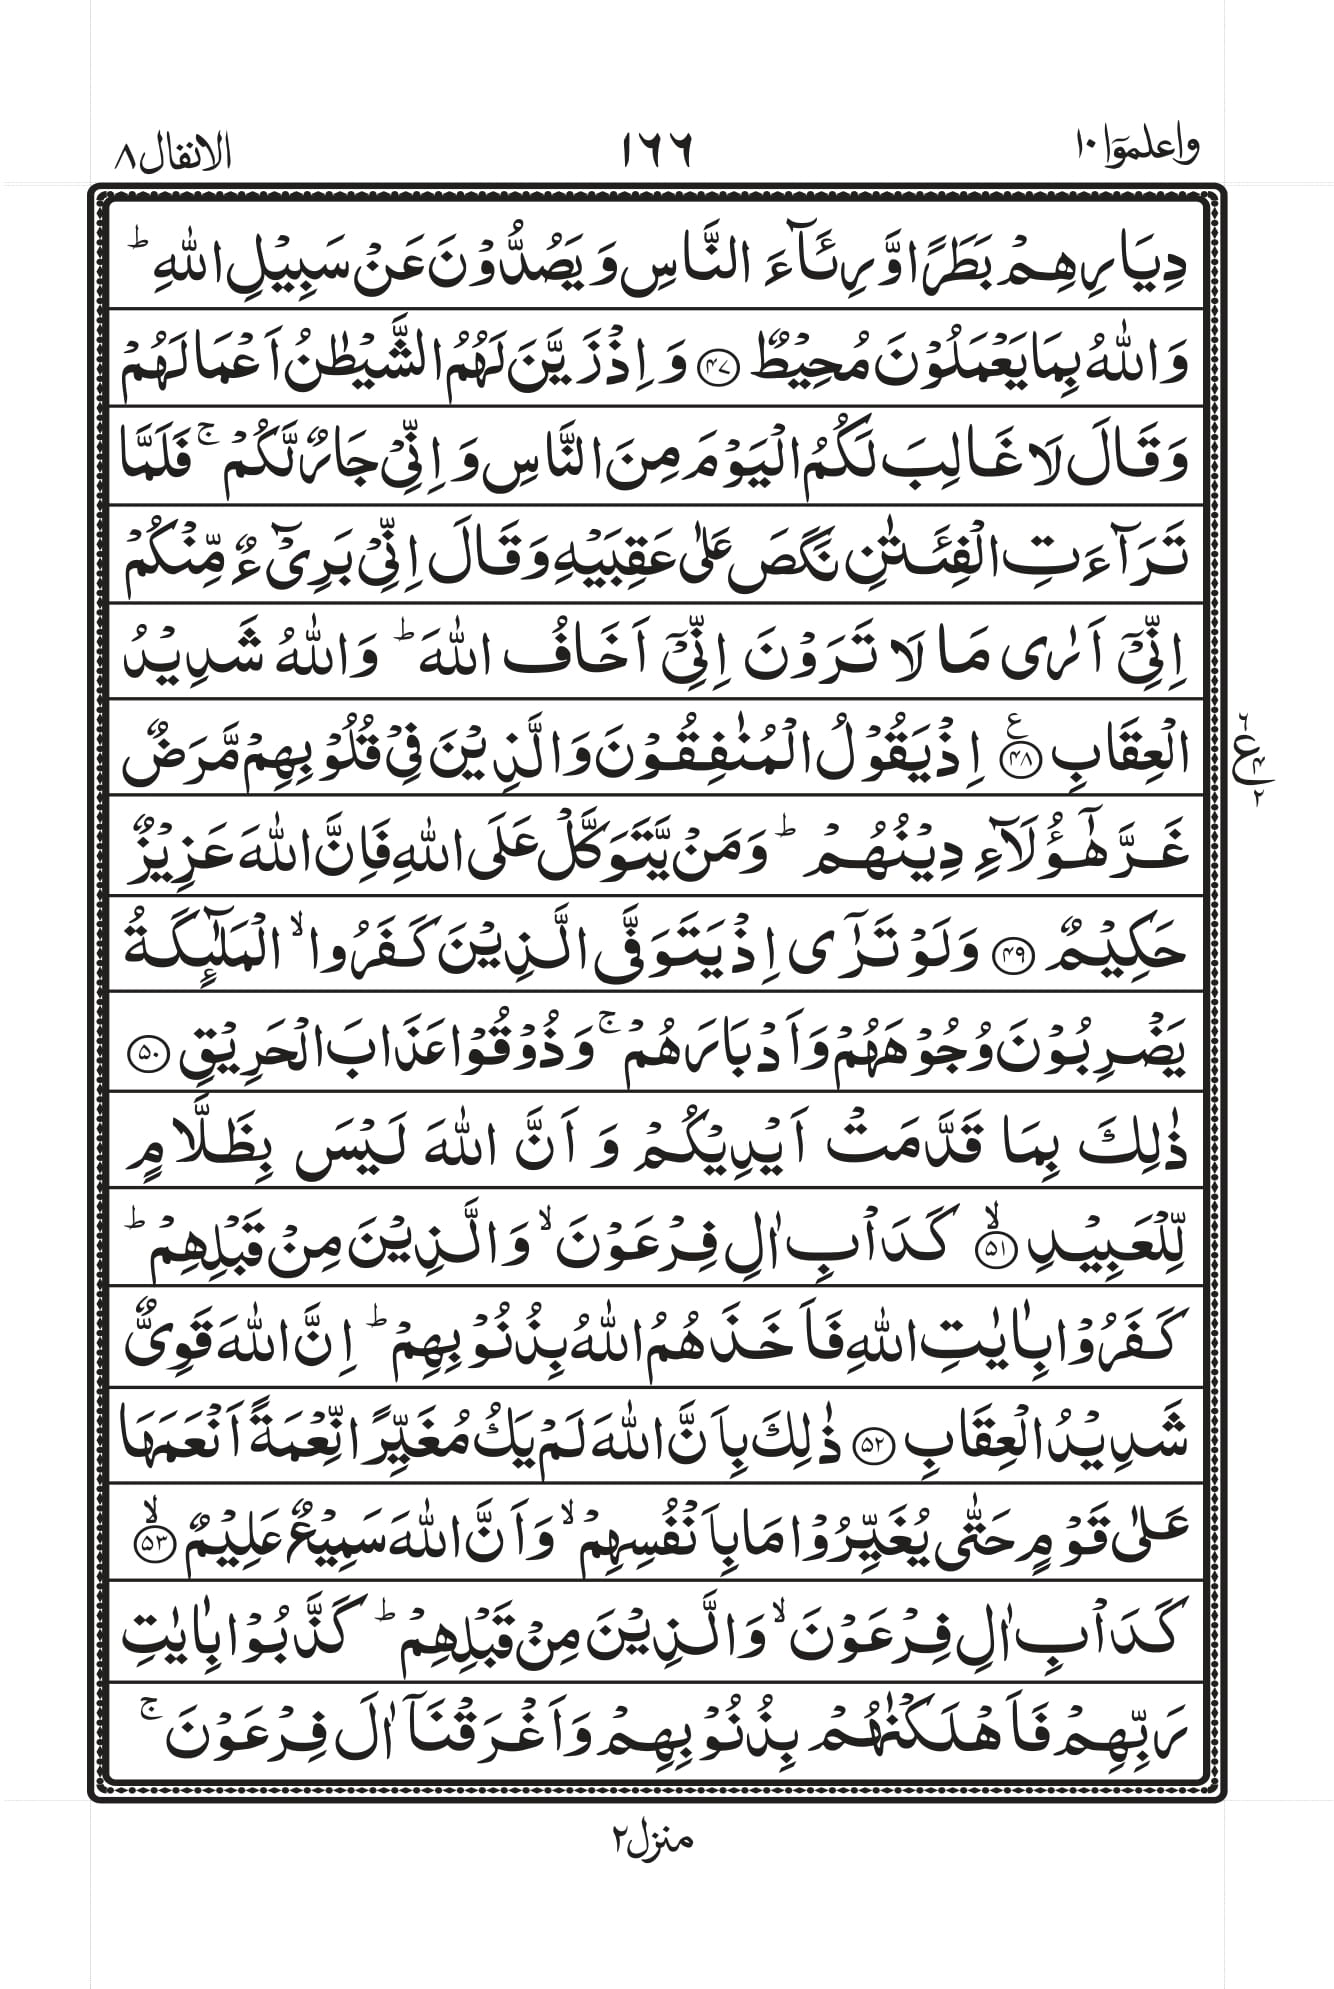 واعلموٓا ۱۰ ۱۶۶ الانفال ۸
دِيَارِهِمْ بَطَرًا وَّرِئَآءَ النَّاسِ وَيَصُدُّوْنَ عَنْ سَبِيْلِ اللّٰهِ ؕ
وَاللّٰهُ بِمَا يَعْمَلُوْنَ مُحِيْطٌ ﴿۴۷﴾ وَاِذْ زَيَّنَ لَهُمُ الشَّيْطٰنُ اَعْمَالَهُمْ
وَقَالَ لَا غَالِبَ لَكُمُ الْيَوْمَ مِنَ النَّاسِ وَاِنِّيْ جَارٌ لَّكُمْ ۚ فَلَمَّا
تَرَآءَتِ الْفِئَتٰنِ نَكَصَ عَلٰى عَقِبَيْهِ وَقَالَ اِنِّيْ بَرِيْٓءٌ مِّنْكُمْ
اِنِّيْٓ اَرٰى مَا لَا تَرَوْنَ اِنِّيْٓ اَخَافُ اللّٰهَ ؕ وَاللّٰهُ شَدِيْدُ
الْعِقَابِ ﴿۴۸﴾ ع اِذْ يَقُوْلُ الْمُنٰفِقُوْنَ وَالَّذِيْنَ فِيْ قُلُوْبِهِمْ مَّرَضٌ
۶ ع ۴ ۲
غَرَّ هٰٓؤُلَآءِ دِيْنُهُمْ ؕ وَمَنْ يَّتَوَكَّلْ عَلَى اللّٰهِ فَاِنَّ اللّٰهَ عَزِيْزٌ
حَكِيْمٌ ﴿۴۹﴾ وَلَوْ تَرٰٓى اِذْ يَتَوَفَّى الَّذِيْنَ كَفَرُوا ۙ الْمَلٰٓئِكَةُ
يَضْرِبُوْنَ وُجُوْهَهُمْ وَاَدْبَارَهُمْ ۚ وَذُوْقُوْا عَذَابَ الْحَرِيْقِ ﴿۵۰﴾
ذٰلِكَ بِمَا قَدَّمَتْ اَيْدِيْكُمْ وَاَنَّ اللّٰهَ لَيْسَ بِظَلَّامٍ
لِّلْعَبِيْدِ ﴿۵۱﴾ ۙ كَدَاْبِ اٰلِ فِرْعَوْنَ ۙ وَالَّذِيْنَ مِنْ قَبْلِهِمْ ؕ
كَفَرُوْا بِاٰيٰتِ اللّٰهِ فَاَخَذَهُمُ اللّٰهُ بِذُنُوْبِهِمْ ؕ اِنَّ اللّٰهَ قَوِيٌّ
شَدِيْدُ الْعِقَابِ ﴿۵۲﴾ ذٰلِكَ بِاَنَّ اللّٰهَ لَمْ يَكُ مُغَيِّرًا نِّعْمَةً اَنْعَمَهَا
عَلٰى قَوْمٍ حَتّٰى يُغَيِّرُوْا مَا بِاَنْفُسِهِمْ ۙ وَاَنَّ اللّٰهَ سَمِيْعٌ عَلِيْمٌ ﴿۵۳﴾ ۙ
كَدَاْبِ اٰلِ فِرْعَوْنَ ۙ وَالَّذِيْنَ مِنْ قَبْلِهِمْ ؕ كَذَّبُوْا بِاٰيٰتِ
رَبِّهِمْ فَاَهْلَكْنٰهُمْ بِذُنُوْبِهِمْ وَاَغْرَقْنَآ اٰلَ فِرْعَوْنَ ۚ
منزل ۲